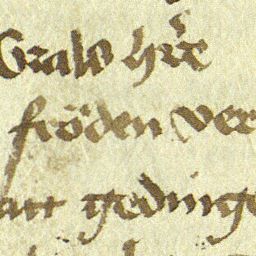 Grals hr̄e
fröden ver
att gedinge